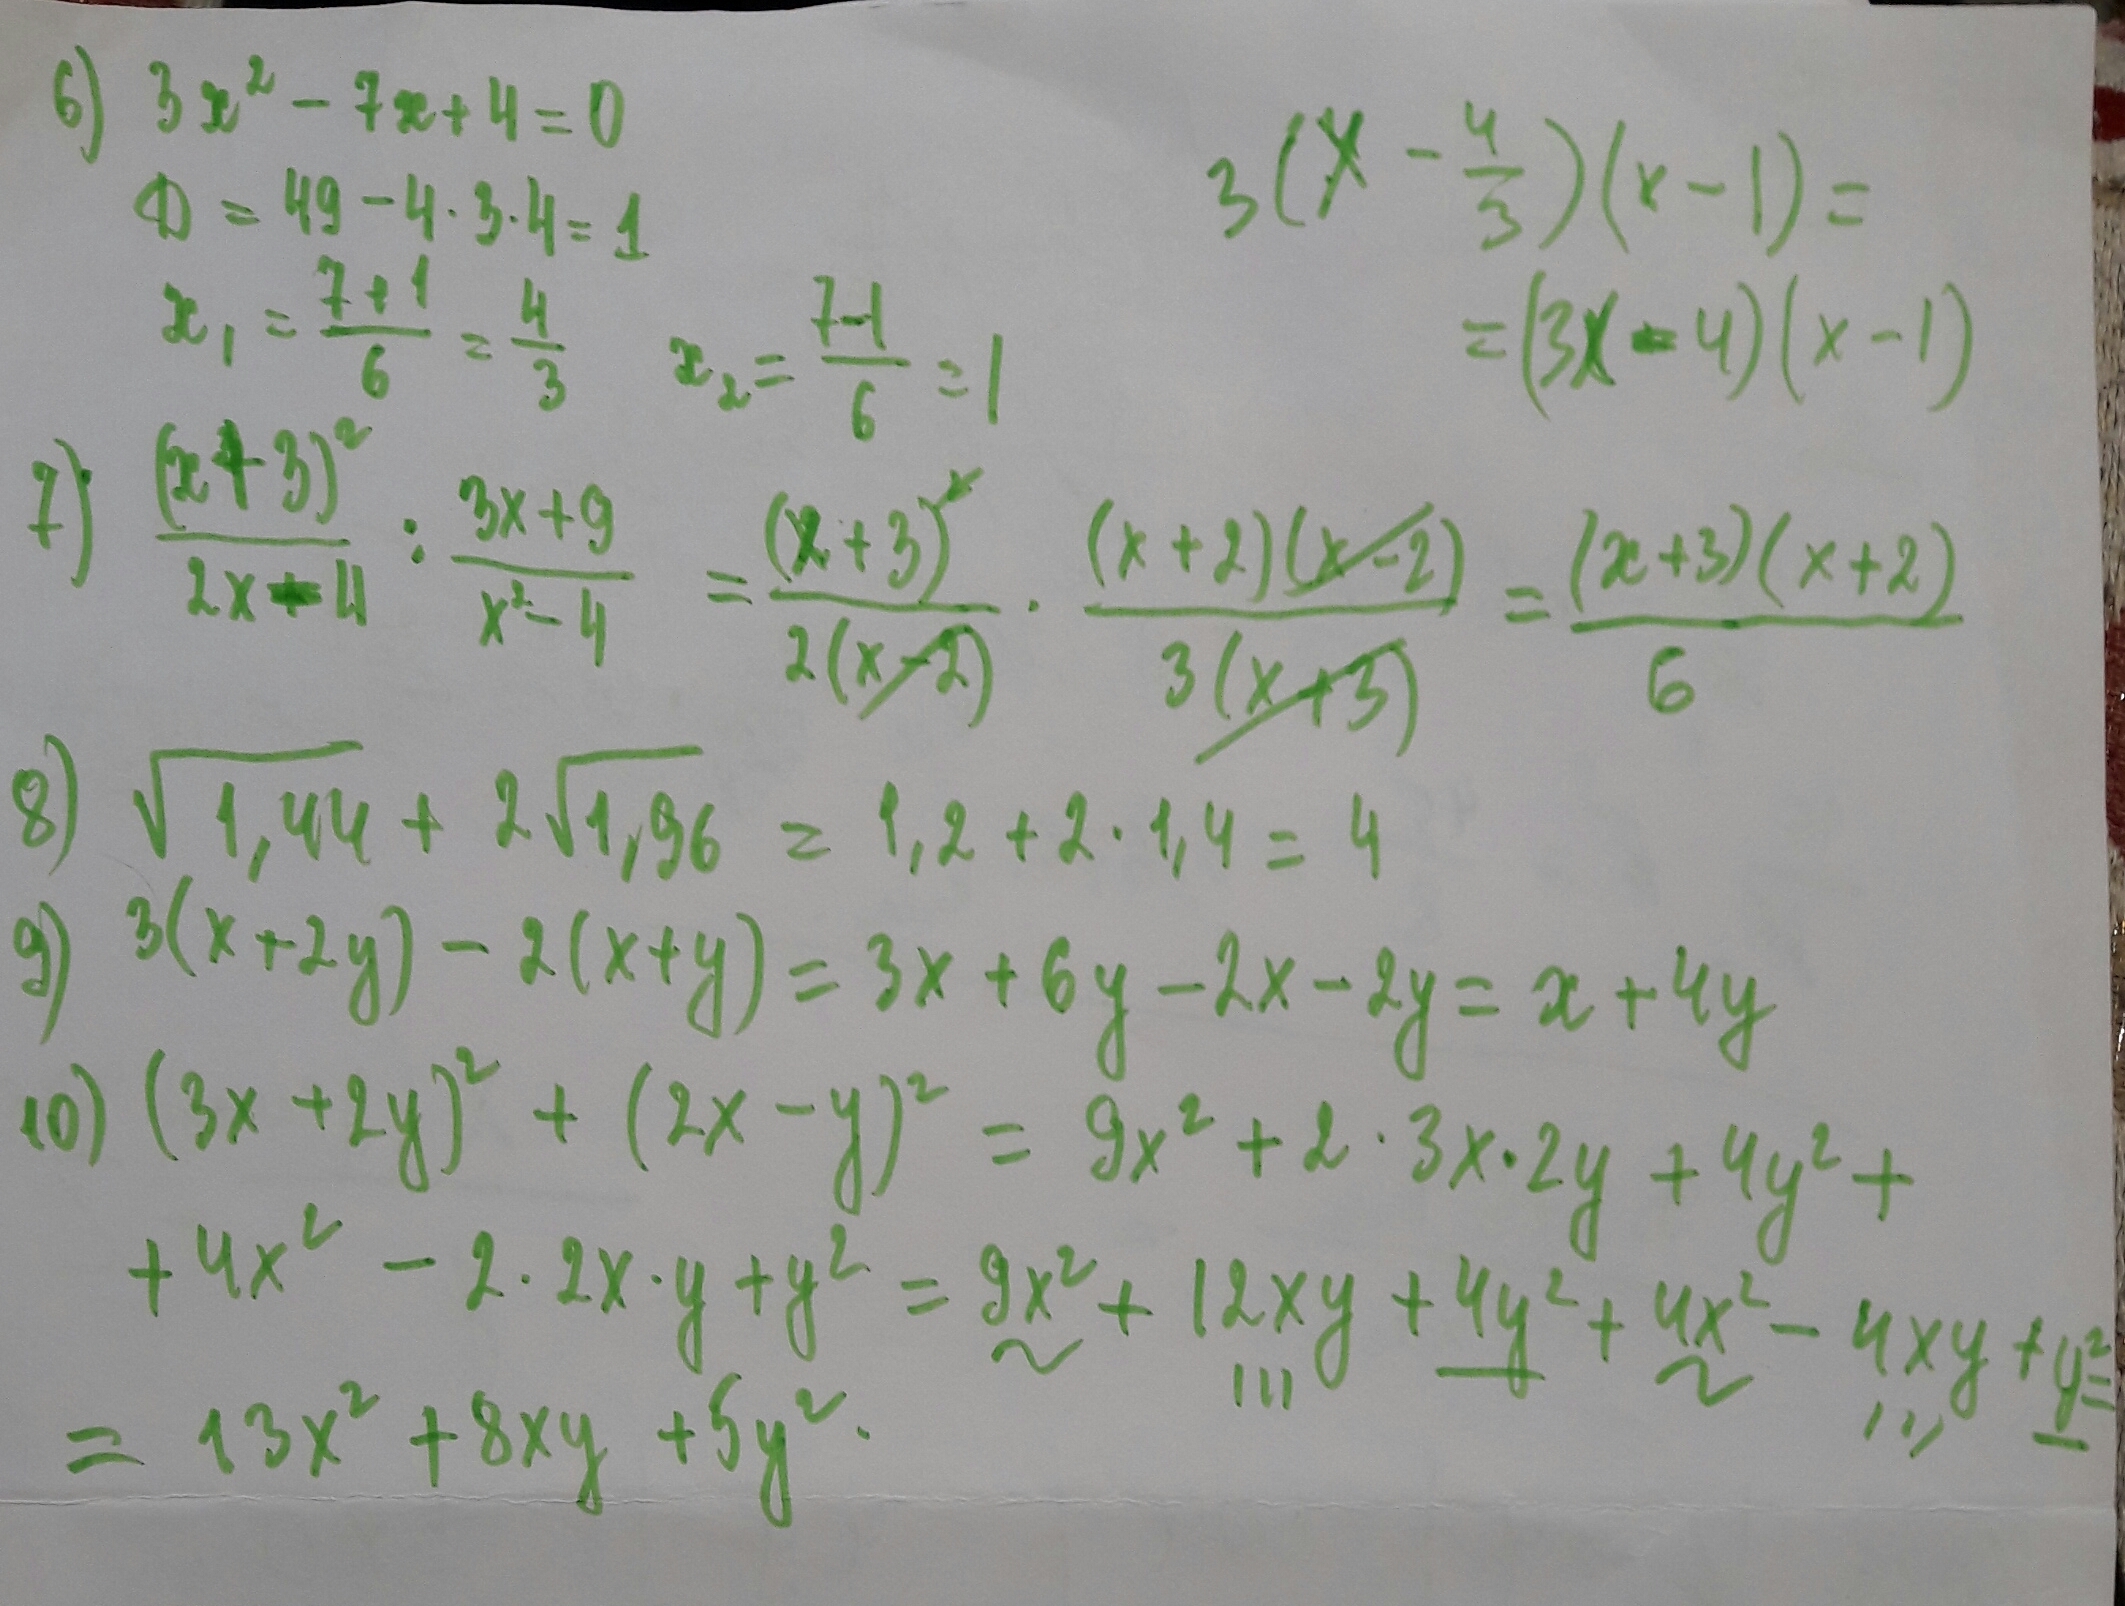 6) 3x² - 7x + 4 = 0
D = 49 - 4·3·4 = 1
x₁ = (7+1)/6 = 4/3 x₂ = (7-1)/6 = 1
3(x - 4/3)(x - 1) =
= (3x - 4)(x - 1)
7) (x+3)²/(2x-4) : (3x+9)/(x²-4) = (x+3)²/(2(x-2)) · (x+2)(x-2)/(3(x+3)) = (x+3)(x+2)/6
8) √1,44 + 2√1,96 = 1,2 + 2·1,4 = 4
9) 3(x+2y) - 2(x+y) = 3x + 6y - 2x - 2y = x + 4y
10) (3x + 2y)² + (2x - y)² = 9x² + 2·3x·2y + 4y² +
+ 4x² - 2·2x·y + y² = 9x² + 12xy + 4y² + 4x² - 4xy + y² =
= 13x² + 8xy + 5y².